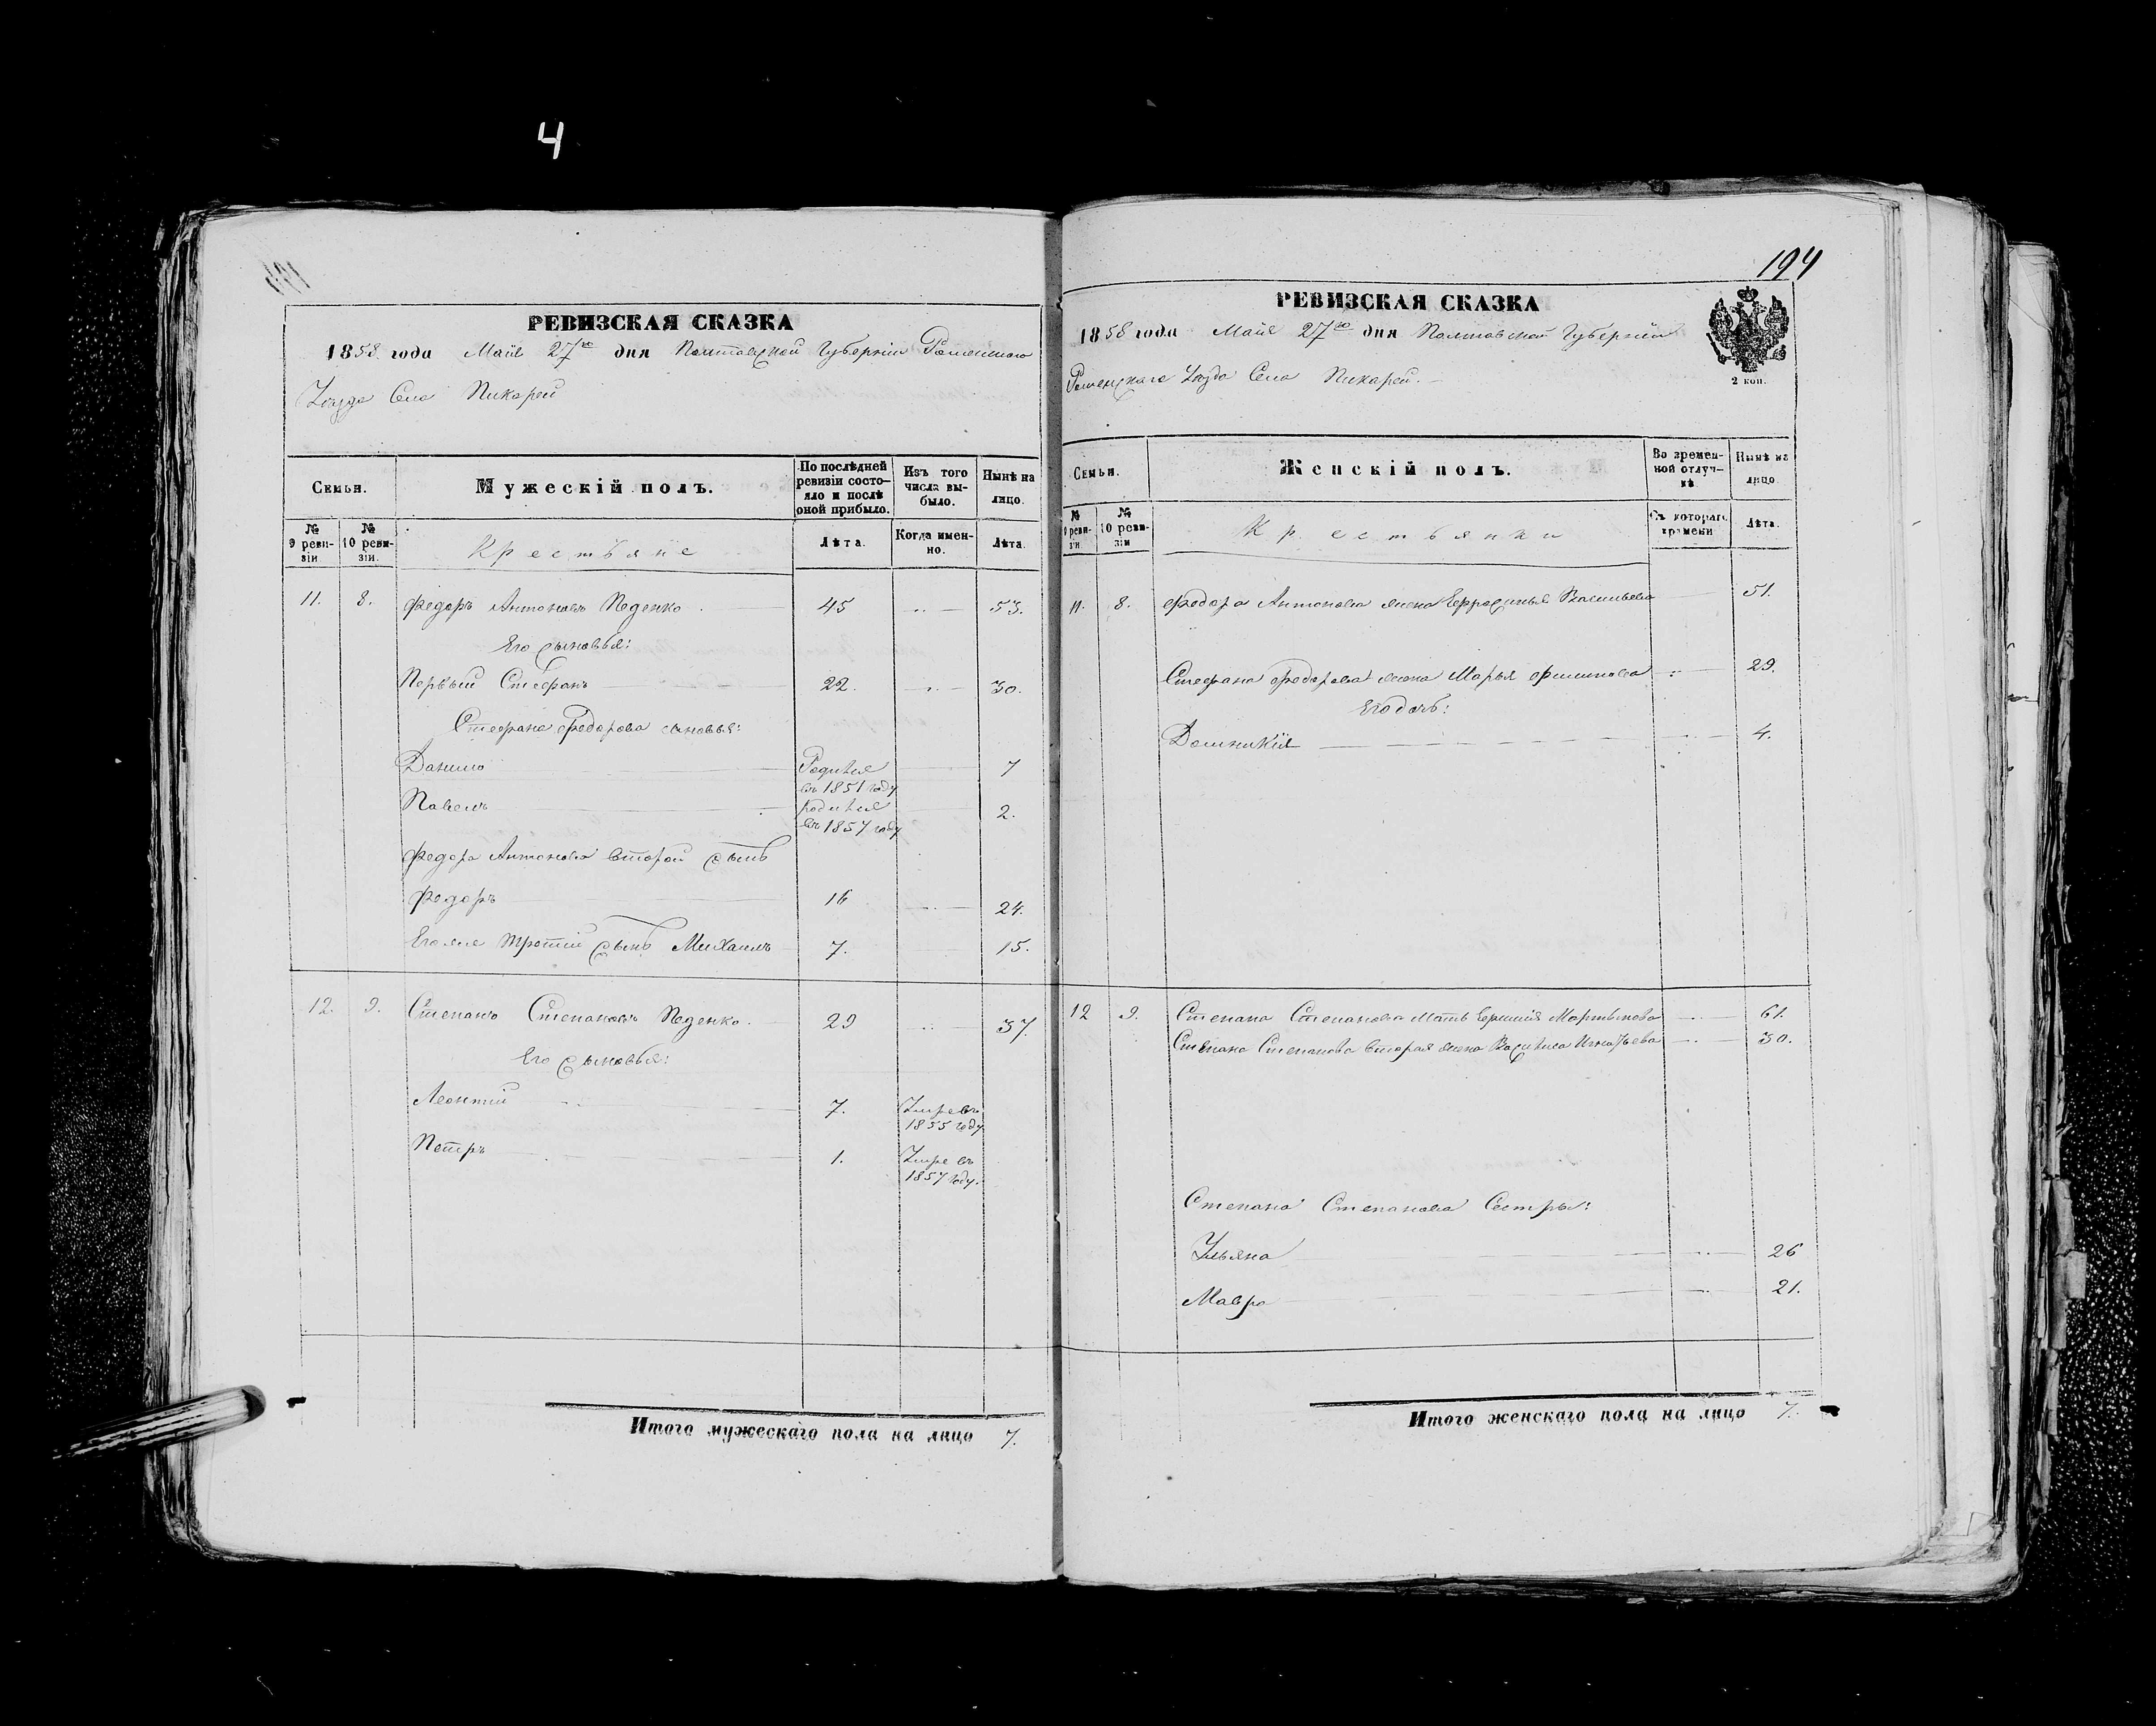 4
РЕВИЗСКАЯ СКАЗКА
1858 года Мая 27го дня Полтавской Губернiи Роменского
Уѣзда Села Пикарей
Семьи.
Мужескiй полъ.
По послѣдней ревизiи состояло и послѣ оной прибыло.
Изъ того числа выбыло.
Нынѣ на лицо.
№ 9 ревизiи
№ 10 ревизiи.
Крестьяне
Лѣта.
Когда именно.
Лѣта.
11. 8. Федоръ Антоновъ Педенко 45 53.
Его сыновья:
Первый Стефанъ 22. 30.
Стефана Федорова сыновья:
Данило Родился въ 1851 году 7
Павелъ родился въ 1857 году 2.
Федора Антонова второй сынъ
Федоръ 16 24.
Его же третiй сынъ Михаилъ 7. 15.
12. 9. Степанъ Степановъ Педенко. 29 37.
Его сыновья:
Леонтiй 7. Умре въ 1855 году
Петръ 1. Умре въ 1857 году.
Итого мужескаго пола на лицо 7.
194
РЕВИЗСКАЯ СКАЗКА
1858 года Мая 27го дня Полтавской Губернiи
Роменскаго Уѣзда Села Пикарей.
2 коп.
Семьи.
Женскiй полъ.
Во временной отлучкѣ
Нынѣ на лицо
№ 9 ревизiи
№ 10 ревизiи
Крестьянки
Съ котораго времени
Лѣта.
11. 8. Федора Антонова жена Евфросинья Васильева 51.
Стефана Федорова жена Марья Филипова 29.
Его дочь:
Домникiя 4.
12 9. Степана Степанова Мать Мартынова 61.
Степана Степанова вторая жена Василиса Игнатьева 30.
Степана Степанова Сестры:
Ульяна 26
Мавра 21.
Итого женскаго пола на лицо 7.